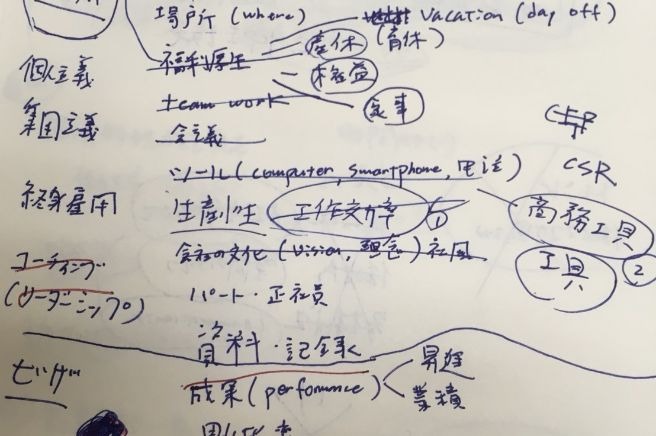 場所 (where)
vacation (day off)
産休
(育休)
福利厚生
権益
食事
team work
会議
個人主義
集団主義
終身雇用
コーチィング
(リーダーシップ)
ビザ
ツール (computer, smartphone, 电话)
生産性
工作效率
①
会社の文化 (vision, 理念) 社風
パート・正社員
資料・記録
成果 (performance)
昇進
業績
CSR
商務工具
工具
②